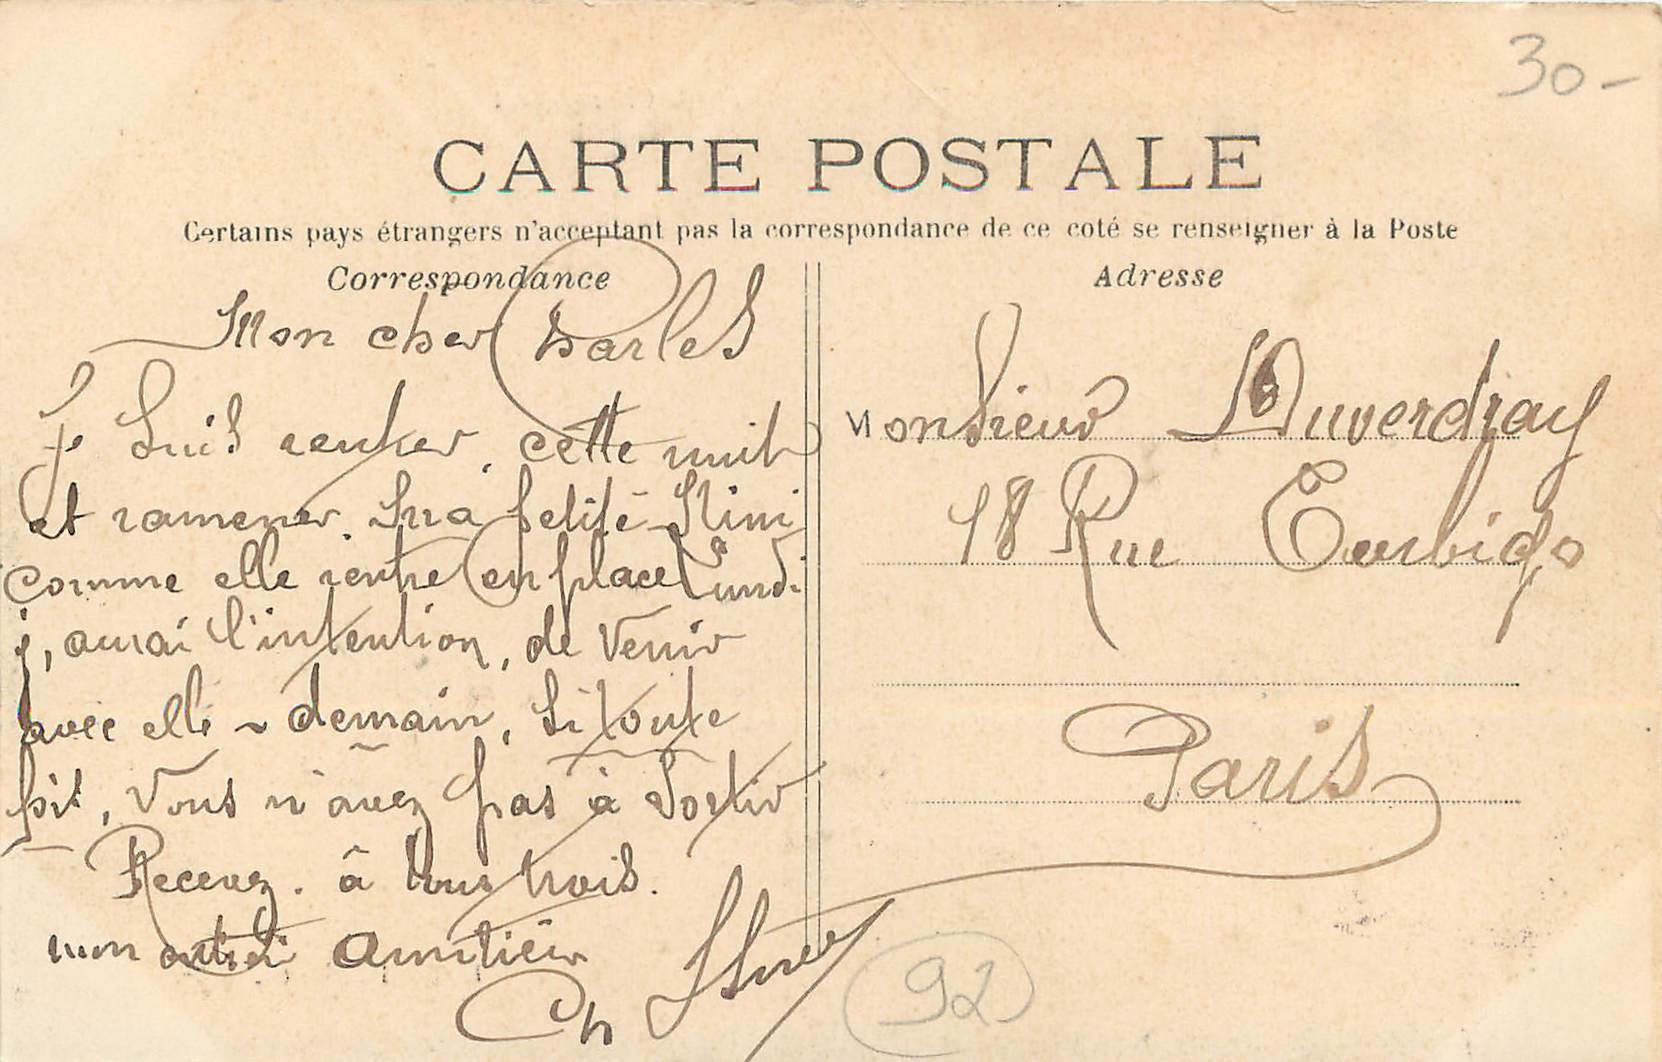 30-
CARTE POSTALE
Certains pays étrangers n'acceptant pas la correspondance de ce coté se renseigner à la Poste
Correspondance
Adresse
Mon cher Charles
Je suis rentrer, cette nuit
et ramener ma petite Mimi
comme elle rentre en place Lundi
j, aurai l'intention, de venir
avec elle demain, si toute
fois, vous n'avez pas à sortir
Recevez. à tous trois.
mon amitier
Ch
Monsieur Duverdray
18 Rue Turbigo
Paris
92